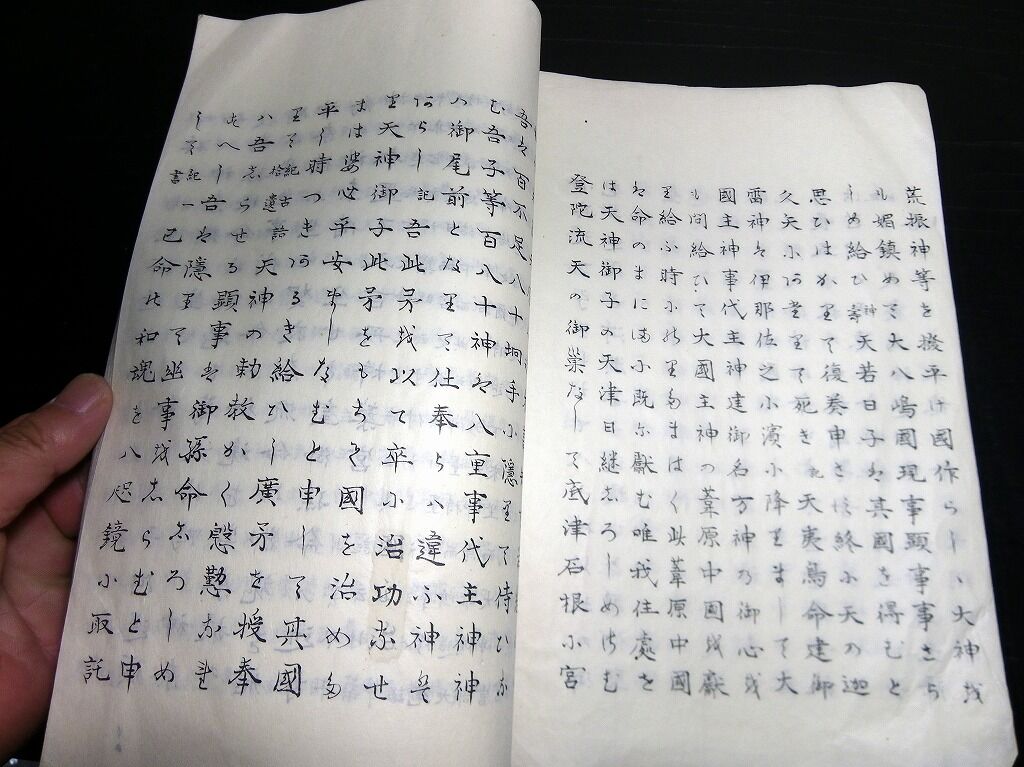 荒振神等を撥平け國作らしゝ大神を
も媚鎮めて大八嶋國現事顯事事さら
しめ給ひ 神 天若日子は其國を得むと
思ひはかりて復奏申さす終に天の迦
久矢にあたりて死き 天夷鳥命建御
雷神は伊那佐之小濱に降りまして大
國主神事代主神建御名方神の御心を
も問給ひて大國主神の葦原中国を献
り給ふ時にのりたまはく此葦原中國
は命のまにまに既に獻む唯我住處を
は天神御子の天津日継しろしめさむ
登陀流天の御巣なして底津石根に宮
吾は百不足八十坰手に隠りて侍ひな
む吾子等百八十神は八重事代主神神
の御尾前となりて仕奉らは違ふ神は
あらし 記 吾此矛を以て卒に治功なせ
り天神御子此矛をもちて國を治めた
まは 平安ましなむと申して其國
平し時つきあるき給ひし廣矛を授奉
りて 紀古語拾遺 天神の勅教かく慇懃なれ
は吾しらせる顯事は御孫命しろしめ
すへし吾は隠りて幽事をしらむと申
して 紀一書 己命の和魂を八咫鏡に取託